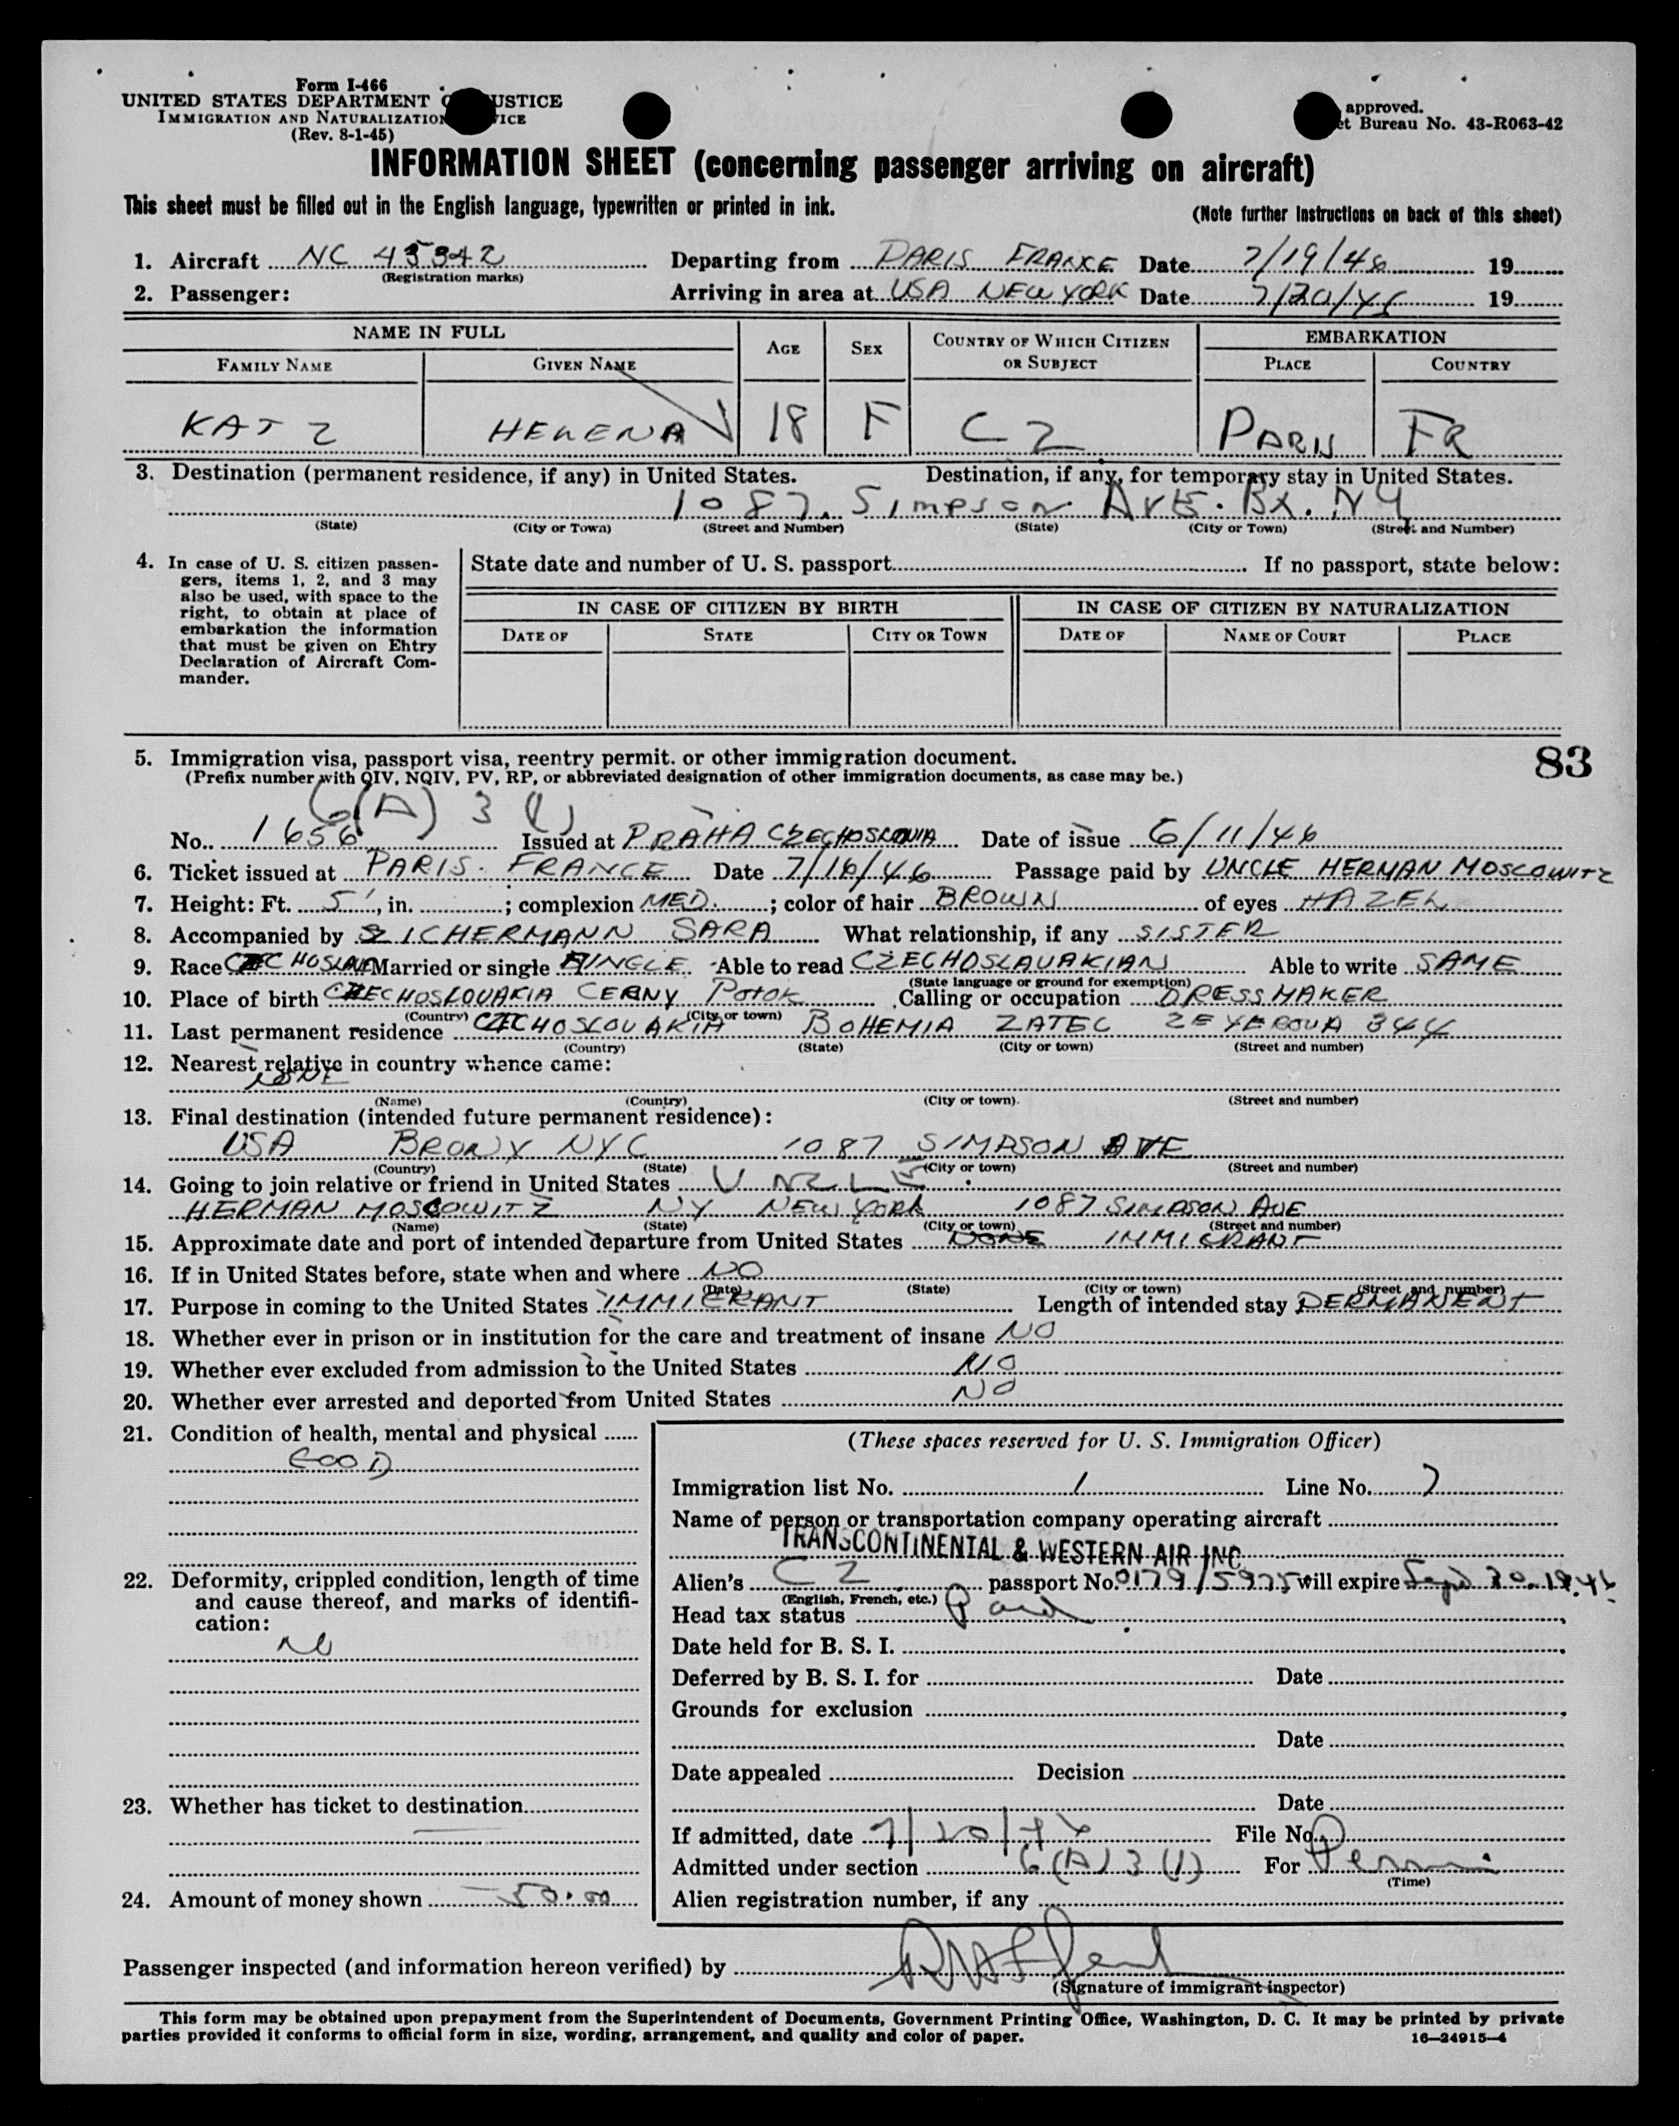 Form I-466
UNITED STATES DEPARTMENT JUSTICE
IMMIGRATION AND NATURALIZATION
(Rev. 8-1-45)
approved.
Bureau No. 43-R063-42
INFORMATION SHEET (concerning passenger arriving on aircraft)
This sheet must be filled out in the English language, typewritten or printed in ink.
(Note further instructions on back of this sheet)
1. Aircraft NC 45342 Departing from PARIS FRANCE Date 7/19/46 19
(Registration marks)
2. Passenger: Arriving in area at USA NEW YORK Date 7/20/46 19
NAME IN FULL AGE SEX COUNTRY OF WHICH CITIZEN OR SUBJECT EMBARKATION
FAMILY NAME GIVEN NAME PLACE COUNTRY
KATZ HELENA 18 F CZ PARIS FR
3. Destination (permanent residence, if any) in United States. Destination, if any, for temporary stay in United States.
1087 Simpson Ave. Bx. NY
(State) (City or Town) (Street and Number) (State) (City or Town) (Street and Number)
4. In case of U. S. citizen passen-
gers, items 1, 2, and 3 may
also be used, with space to the
right, to obtain at place of
embarkation the information
that must be given on Ehtry
Declaration of Aircraft Com-
mander.
State date and number of U. S. passport If no passport, state below:
IN CASE OF CITIZEN BY BIRTH IN CASE OF CITIZEN BY NATURALIZATION
DATE OF STATE CITY OR TOWN DATE OF NAME OF COURT PLACE
83
5. Immigration visa, passport visa, reentry permit. or other immigration document.
(Prefix number with QIV, NQIV, PV, RP, or abbreviated designation of other immigration documents, as case may be.)
6(A) 3 (1)
No. 1656 Issued at PRAHA CZECHOSLOVIA Date of issue 6/11/46
6. Ticket issued at PARIS. FRANCE Date 7/16/46 Passage paid by UNCLE HERMAN MOSCOWITZ
7. Height: Ft. 5', in. ; complexion MED. ; color of hair BROWN of eyes HAZEL
8. Accompanied by SZICHERMANN SARA What relationship, if any SISTER
9. Race Married or single SINGLE Able to read CZECHOSLAVAKIAN Able to write SAME
(State language or ground for exemption)
10. Place of birth CZECHOSLOVAKIA CERNY POTOK Calling or occupation DRESSMAKER
(Country) (City or town)
11. Last permanent residence CZECHOSLOVAKIA BOHEMIA ZATEC ZEYEROVA 344
(Country) (State) (City or town) (Street and number)
12. Nearest relative in country whence came:
NONE
(Name) (Country) (City or town) (Street and number)
13. Final destination (intended future permanent residence):
USA BRONX NYC 1087 SIMPSON AVE
(Country) (State) (City or town) (Street and number)
14. Going to join relative or friend in United States UNCLE
HERMAN MOSCOWITZ NY NEW YORK 1087 SIMPSON AVE
(Name) (State) (City or town) (Street and number)
15. Approximate date and port of intended departure from United States NONE IMMIGRANT
16. If in United States before, state when and where NO
(Date) (State) (City or town) (Street and number)
17. Purpose in coming to the United States IMMIGRANT Length of intended stay PERMANENT
18. Whether ever in prison or in institution for the care and treatment of insane NO
19. Whether ever excluded from admission to the United States NO
20. Whether ever arrested and deported from United States NO
21. Condition of health, mental and physical
GOOD
22. Deformity, crippled condition, length of time
and cause thereof, and marks of identifi-
cation:
NO
23. Whether has ticket to destination
24. Amount of money shown 50.00
(These spaces reserved for U. S. Immigration Officer)
Immigration list No. 1 Line No. 7
Name of person or transportation company operating aircraft
TRANSCONTINENTAL & WESTERN AIR INC
Alien's CZ passport No. 0179/5975 will expire Sept 30 1946
(English, French, etc.)
Head tax status Paid
Date held for B. S. I.
Deferred by B. S. I. for Date
Grounds for exclusion
Date
Date appealed Decision
Date
If admitted, date 7/20/46 File No.
Admitted under section 6(A) 3 (1) For Perm
(Time)
Alien registration number, if any
Passenger inspected (and information hereon verified) by
(Signature of immigrant inspector)
This form may be obtained upon prepayment from the Superintendent of Documents, Government Printing Office, Washington, D. C. It may be printed by private
parties provided it conforms to official form in size, wording, arrangement, and quality and color of paper. 16—24915-4